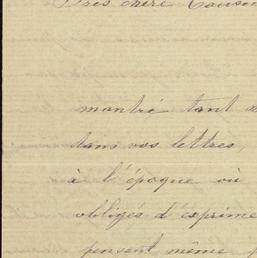 Très chère Cousin
montré tant
dans vos lettres,
à l'époque où
obligés d'exprime
pensent même